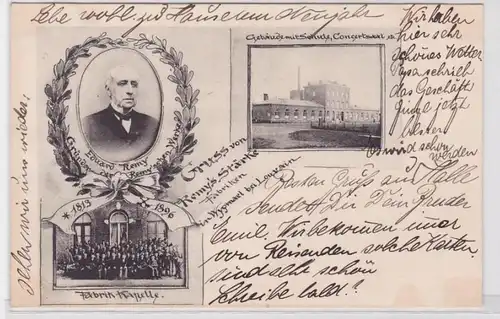 Lebe wohl. zu Hause bem Neujahr
Gebäude mit Schule, Concertsaal, etc.
Wir haben
hier sehr
schönes Wetter
Papa schrieb
das Geschäft
ginge jetzt
besser.
Es wird schon
werden
Eduard Remy
Gründer der Remy'schen Werke
* 1813
† 1896
Fabrik-Kapelle.
Gruss von
Remy's Stärke
Fabriken
in Wygmael bei Louvain
Besten Gruß aus Halle
sendet Dir Dein Bruder
Emil. Wir bekommen immer
von Reisenden solche Karten
sind alle schön
Schreibe bald!